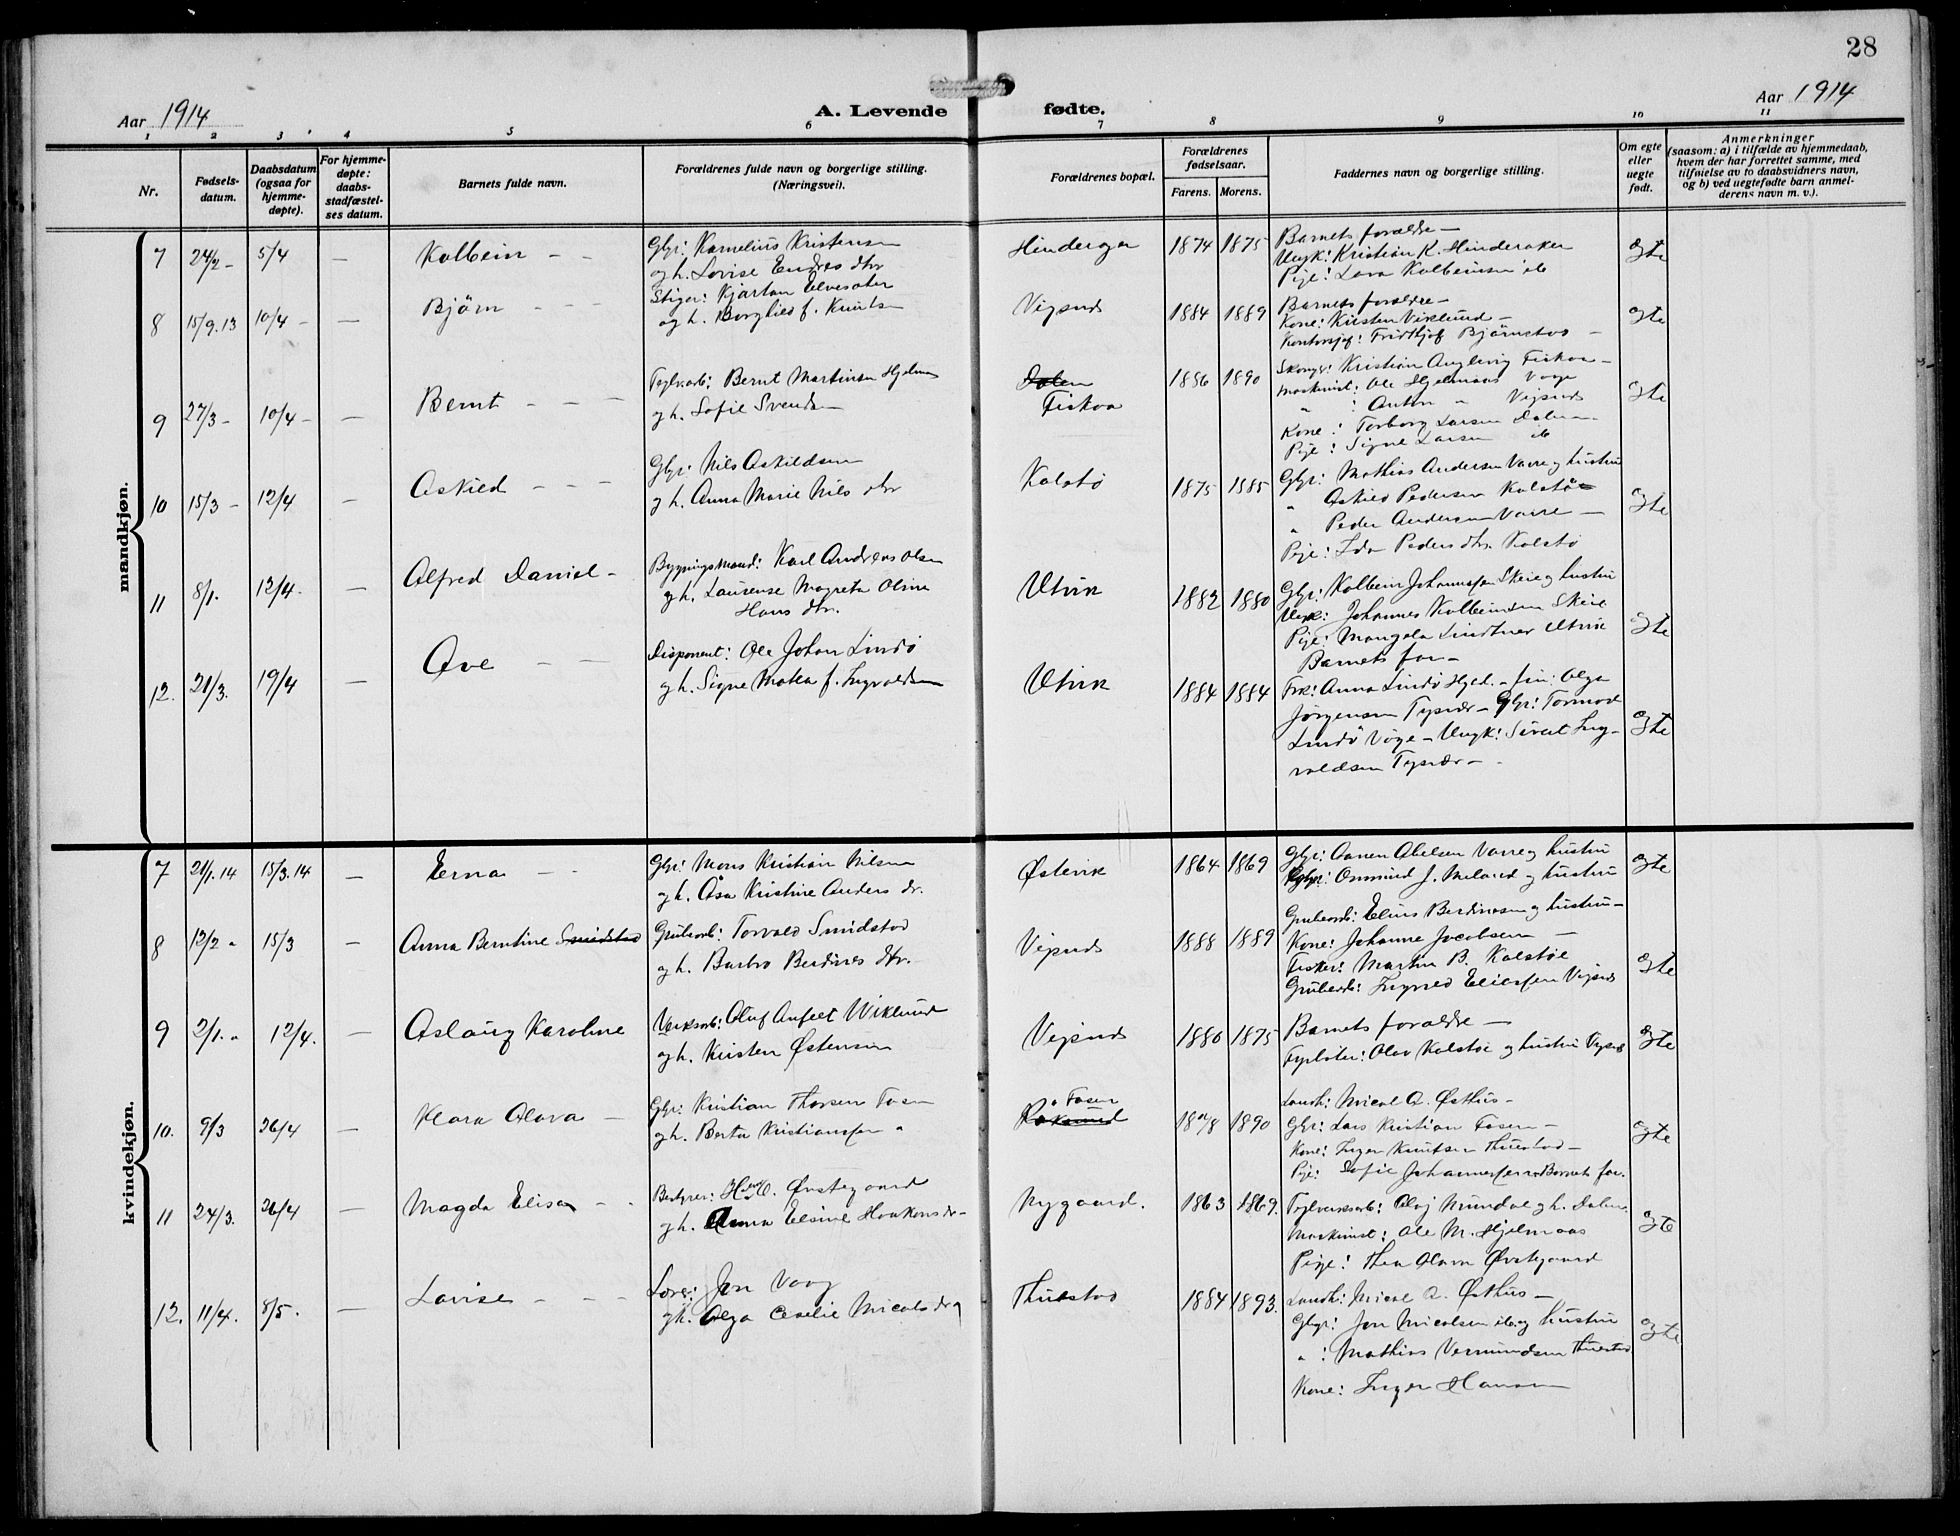 28
Aar 1914
A. Levende
fødte.
Aar 1914
1 2 3 4 5 6 7 8 9 10 11
Nr.
Fødsels-
datum.
Daabsdatum
(ogsaa for
hjemme-
døpte).
For hjemme-
døpte:
daabs-
stadfæstel-
ses datum.
Barnets fulde navn.
Forældrenes fulde navn og borgerlige stilling.
(Næringsvei).
Forældrenes bopæl.
Forældrenes
fødselsaar.
Farens. Morens.
Faddernes navn og borgerlige stilling.
Om egte
eller
uegte
født.
Anmerkninger
(saasom: a) i tilfælde av hjemmedaab,
hvem der har forrettet samme, med
tilføielse av to daabsvidners navn,
og b) ved uegtefødte barn anmel-
derens navn m. v.).
mandkjøn.
7 24/2 - 5/4 — Kolbein - -
Gbr: Kornelius Kristensen
og h. Lovise Endres dtr
1874 1875
Barnets forældre -
Ungk: Kristian K. Hinderaker
Pige: Lava Kolbeinsen ib
egte
8 15/9.13 10/4 - — Bjørn - - -
Stiger: Kjartan Elvesater
og h. Borglied f. Knutsen
Vigsnes 1884 1889
Barnets forældre -
Kone: Kristen Viklund -
Kontorsjef: Fridthjof Bjørnstad -
egte
9 27/3 - 10/4 - — Bernt - - -
Teglv.arb: Bernt Martinsen Hjelmaas
og h. Sofie Svends
Dalen
Fiskaa
1856 1890
Kristian Anglevig Fiskaa -
Maskinist: Ole Hjelmaas Vaage
" : Anton " Vigsnes
Kone: Torborg Larsen Dalen
Pige: Signe Larsen ib
egte
10 15/3 - 12/4 — Askild - - -
Gbr: Nils Askildsen
og h. Anna Marie Nils dtr
Kolstø 1875 1885
Gbr: Mathias Andersen Varre og hustru
" Askild Pedersen Kolstø
" Peder Andersen Varre —
Pige: Ida Peders dtr. Kolstø
egte
11 8/1. 12/4. — Alfred Daniel -
Bygningsmand: Karl Andreas Olsen
og h. Laurense Magreta Oline
Hans dtr.
Utvik 1882 1880
Gbr: Kolbein Johannessen Skeie og hustru
Ungk: Johannes Kolbeinsen Skeie
Pige: Mangela Lindtner Utvik
egte
12. 21/3. 19/4 — Ove - -
Disponent: Ole Johan Lindø
og h. Signe Matea f. Ingvaldsen
Utvik 1884 1884
Barnets far -
Frk: Anna Lindø Hjed. - fru: Olga
Jørgensen Tysvær - Gbr: Tormod
Lindø Våge - Ungk: Sivert Ing-
valdsen Tysvær -
egte
kvindekjøn.
7 21/1.14 15/3.14 — Erna - -
Gbr: Mons Kristian Nilsen
og h. Åsa Kristine Anders dr.
Østevik 1864 1869
Gbr: Aanen Abelsen Varre og hustru
Gbr: Osmund J. Meland og hustru
egte
8 12/2 " 15/3 — Anna Berntine Smidstad
Grubearb: Torvald Smidstad
og h. Barbro Berdines dtr.
Vigsnes 1888 1889
Grubearb: Elius Berdinesen og hustru -
Kone: Johanne Jacobsen —
Fisker: Martin B. Kolstøe
Grubearb: Ingvald Eliassen Vigsnes
egte
9 2/1. " 12/4. — Aslaug Karoline
Verksarb: Oluf Anfelt Wiklund
og h. Kristen Østensen
Vigsnes 1880 1875
Barnets forældre —
Fyrbøter: Olav Kolstøe og hustru Vigsnes
egte
10. 9/3 26/4 — Klara Olava -
Gbr: Kristian Thorsen Fosen
og h. Berta Kristiansen "
Fosen
1890
Landh: Nicol A. Østhus -
Gbr: Lars Kristian Fosen -
Kone: Inger Knutsen Thuestad -
Pige: Sofie Johannessen Barnets far.
egte
11 24/3. 26/4 — Magda Elisa - -
Bestyrer: Østegaard
og h. Anna Elsine Haakons dr -
Nygaard. 1863 1869.
Teglverksarb: Olaj Mundal og h. Dalen
Maskinist: Ole M. Hjelmaas
Pige: Thea Olava Østegaard
egte
12. 11/4. 8/5. — Lovise - - -
Lærer: Jon Vaag
og h. Olga Cecilie Nicols dr
Thuestad 1884 1893.
Landh: Nicol A. Østhus -
Gbr: Jon Nicolsen ib. og hustru
" : Mathias Vermundsen Thuestad
Kone: Inger Hansen
egte